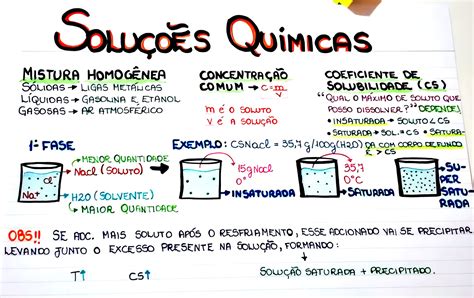 SOLUÇÕES QUÍMICAS
MISTURA HOMOGÊNEA
SÓLIDAS → LIGAS METÁLICAS
LÍQUIDAS → GASOLINA E ETANOL
GASOSAS → AR ATMOSFÉRICO
CONCENTRAÇÃO
COMUM → C = m/v
m É O SOLUTO
V É A SOLUÇÃO
COEFICIENTE DE
SOLUBILIDADE (CS)
"QUAL O MÁXIMO DE SOLUTO QUE
POSSO DISSOLVER?" DEPENDE!
• INSATURADA → SOLUTO < CS
• SATURADA → SOL. = CS
• SATURA-
DA COM CORPO DE FUNDO
> CS
1ª FASE
MENOR QUANTIDADE
NaCl (SOLUTO)
Cl-
Na+
H2O (SOLVENTE)
MAIOR QUANTIDADE
EXEMPLO: CSNaCl = 35,7g/100g(H2O)
15gNaCl
0°C
INSATURADA
35,7
0°C
SATURADA
SU-
PER
SATU-
RADA
OBS!! SE ADC. MAIS SOLUTO APÓS O RESFRIAMENTO, ESSE ADICIONADO VAI SE PRECIPITAR
LEVANDO JUNTO O EXCESSO PRESENTE NA SOLUÇÃO, FORMANDO:
T↑ CS↑
SOLUÇÃO SATURADA + PRECIPITADO.